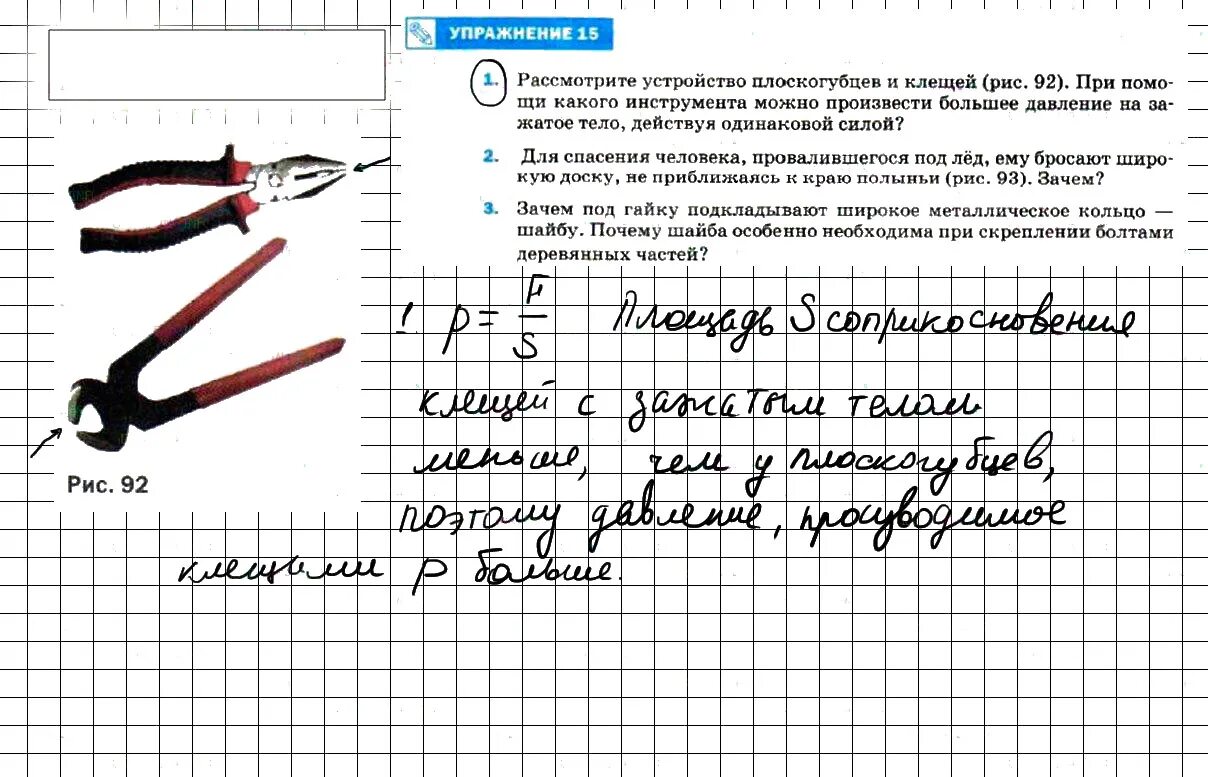 УПРАЖНЕНИЕ 15
1. Рассмотрите устройство плоскогубцев и клещей (рис. 92). При помо-
щи какого инструмента можно произвести большее давление на за-
жатое тело, действуя одинаковой силой?
2. Для спасения человека, провалившегося под лёд, ему бросают широ-
кую доску, не приближаясь к краю полыньи (рис. 93). Зачем?
3. Зачем под гайку подкладывают широкое металлическое кольцо —
шайбу. Почему шайба особенно необходима при скреплении болтами
деревянных частей?
Рис. 92
1. p = F/S Площадь S соприкосновения
клещей с зажатым телом
меньше, чем у плоскогубцев,
поэтому давление, производимое
клещами p больше.